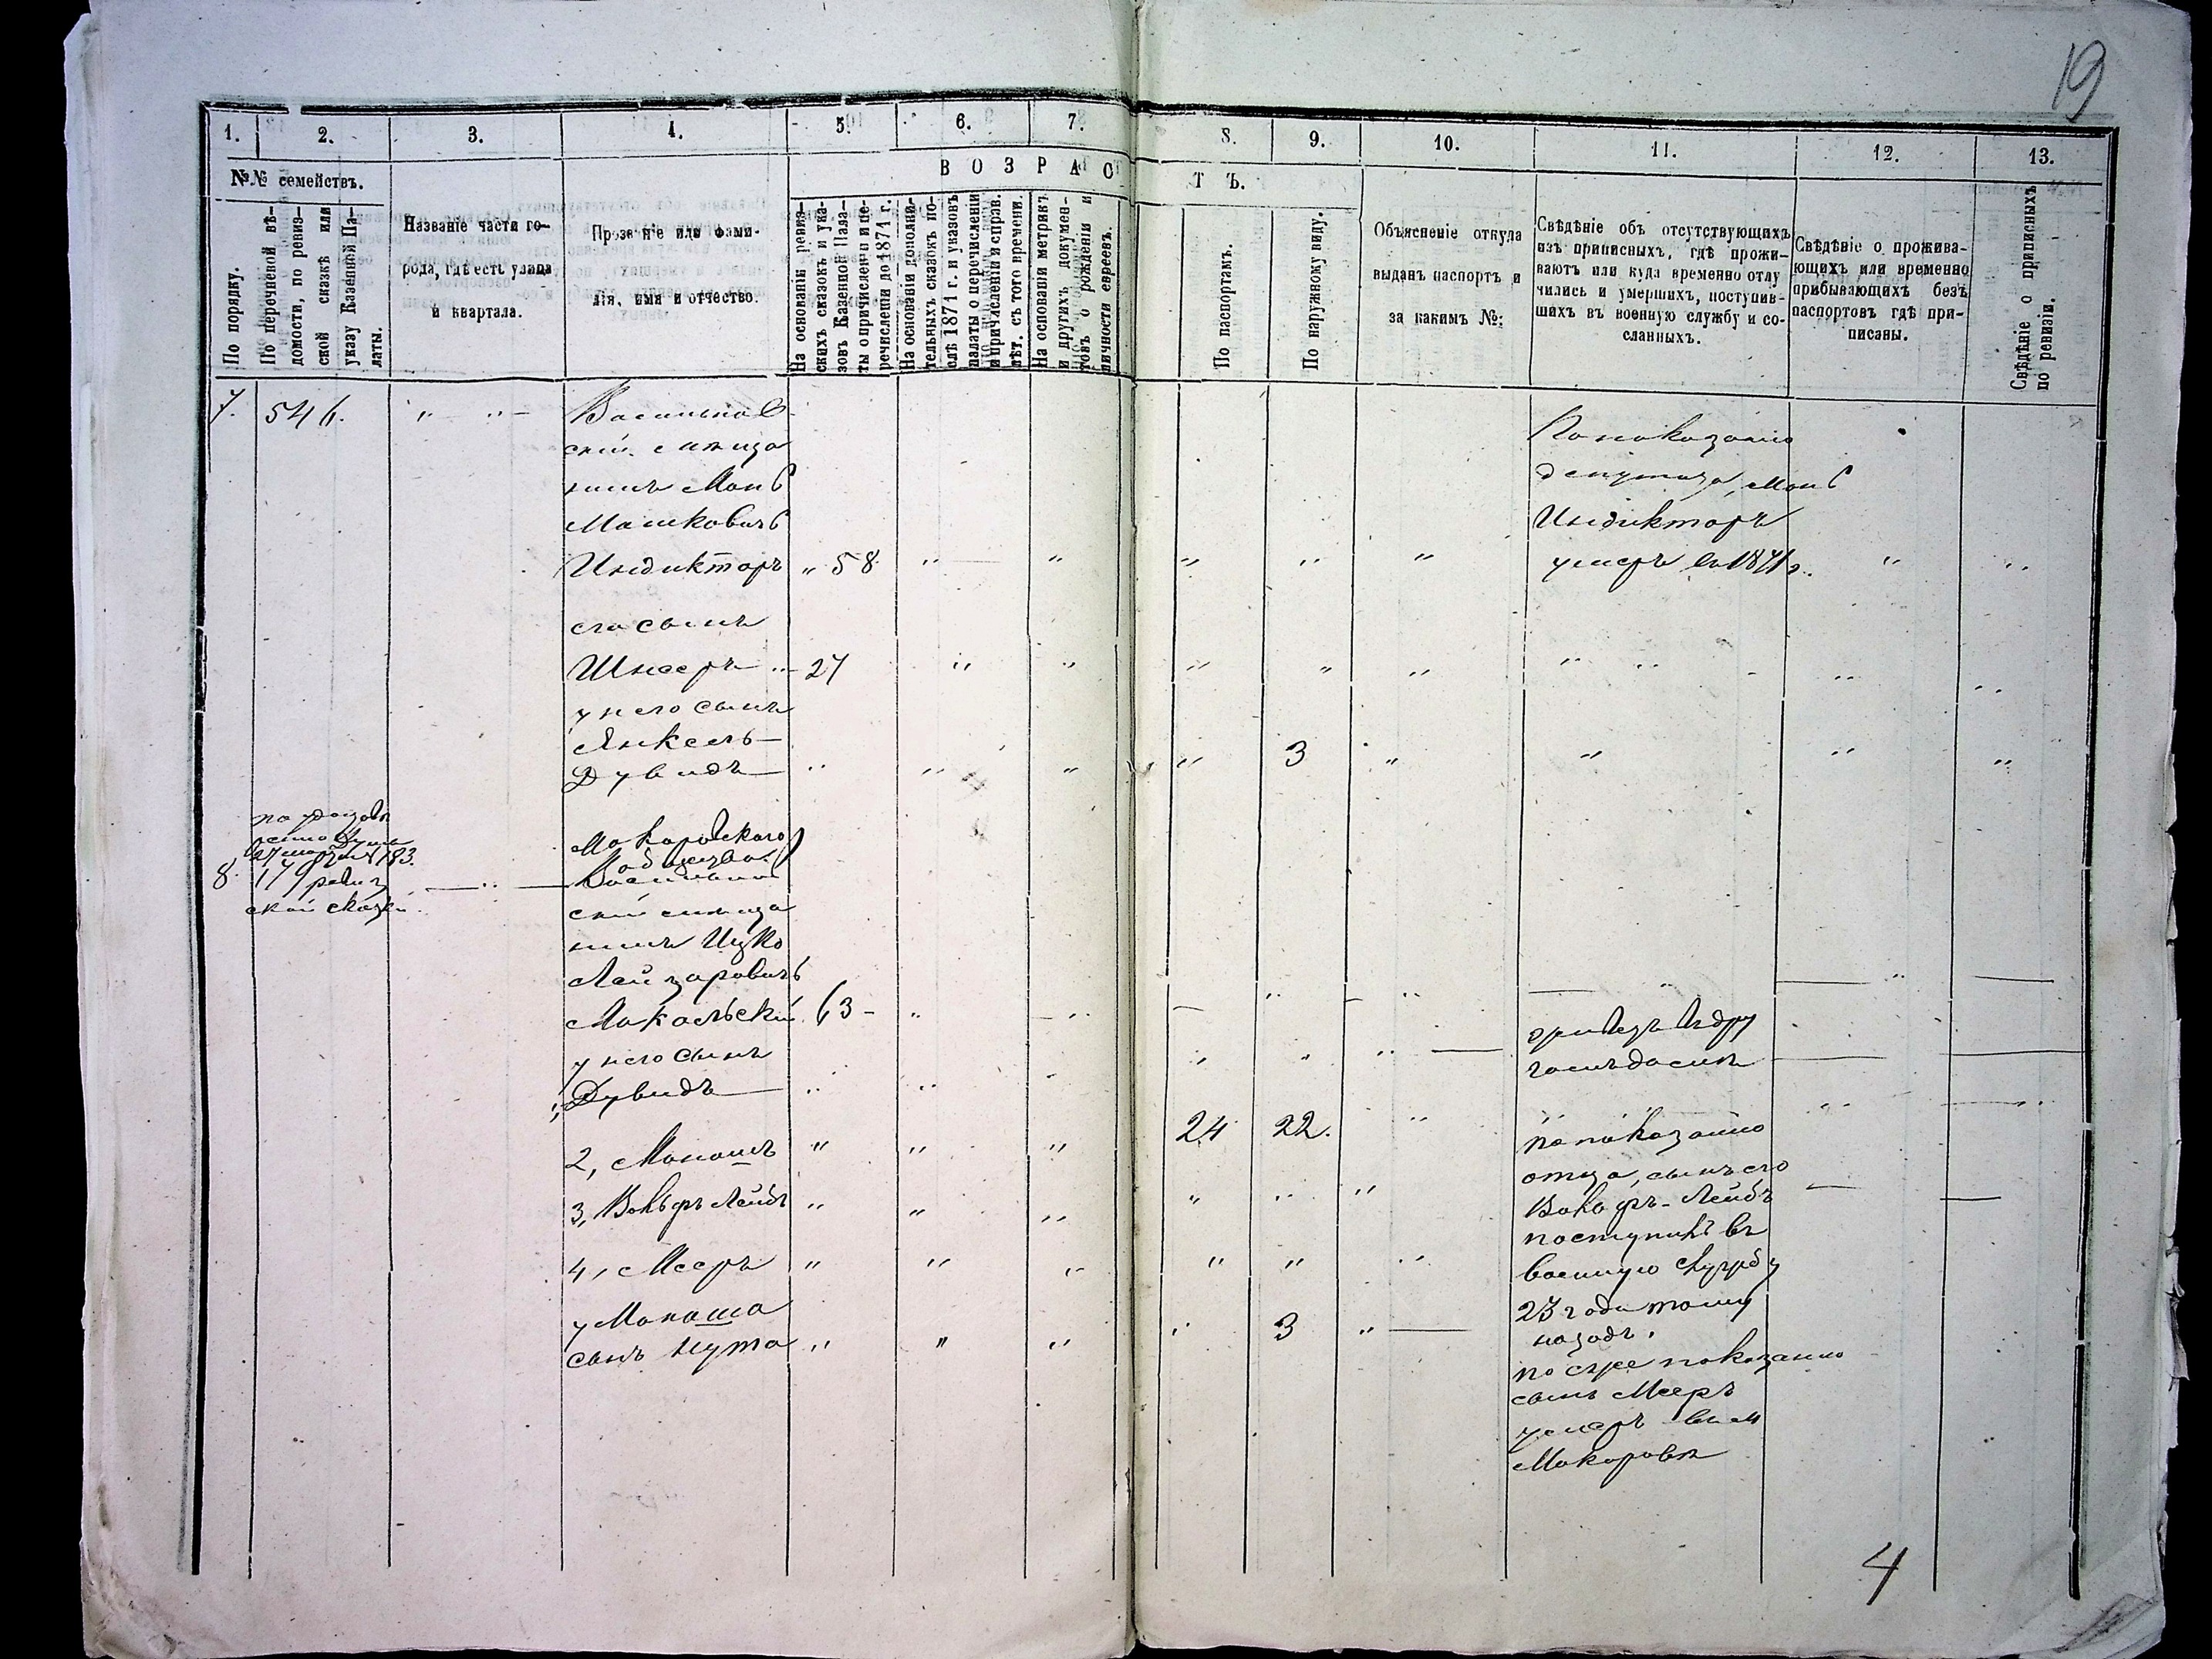 19
1. 2. 3. 4. 5. 6. 7. 8. 9. 10. 11. 12. 13.
№№ семействъ.
ВОЗРАСТЪ.
По порядку.
По перечневой вѣ-
домости, по ревиз-
ской сказкѣ или
указу Казенной Па-
латы.
Названіе части го-
рода, гдѣ есть улица
и квартала.
Прозваніе или фами-
лія, имя и отчество.
На основаніи ревиз-
скихъ сказокъ и ука-
зовъ Казенной Пала-
ты о причисленіи и пе-
речисленіи до 1874 г.
На основаніи дополни-
тельныхъ сказокъ по-
слѣ 1874 г. и указовъ
палаты о перечисленіи
и причисленіи и справ.
лѣт. съ того времени.
На основаніи метрикъ
и другихъ докумен-
товъ о рожденіи и
личности евреевъ.
По паспортамъ.
По наружному виду.
Объясненіе откуда
выданъ паспортъ и
за какимъ №:
Свѣдѣніе объ отсутствующихъ
изъ приписныхъ, гдѣ прожи-
ваютъ или куда временно отлу
чились и умершихъ, поступив-
шихъ въ военную службу и со-
сланныхъ.
Свѣдѣніе о прожива-
ющихъ или временно
прибывающихъ безъ
паспортовъ гдѣ при-
писаны.
Свѣдѣніе о приписныхъ
по ревизіи.
7. 546. " " Васильков-
скій мѣща
нинъ
Машковичъ
Индикторъ " 58 " " " " " " "
По показанію
депутата,
Индикторъ
умеръ въ 1871 г.
его сынъ
Шнееръ 27 " " " " " " " " "
у него сынъ
Янкель
Дувидъ " " " " 3 " " " "
8. 179 ревиз
ской сказки
Макаровского
Общества
Васильков
скій мѣща
нинъ Ицко
Лейзаровичъ
Макальскій 63 " " " " "
у него сынъ
1, Дувидъ " " " " " "
2, Монашъ " " " 24 22. "
3, Вольфъ Лейбъ " " " " " "
4, Мееръ " " " " " "
у Монаша
сынъ Нута " " " " 3 "
по показанію
отца, сынъ его
Вольфъ-Лейбъ
поступилъ въ
военную службу
23 года тому
назадъ.
по сужее показанію
сынъ Мееръ
умеръ въ м
Макаровѣ
4